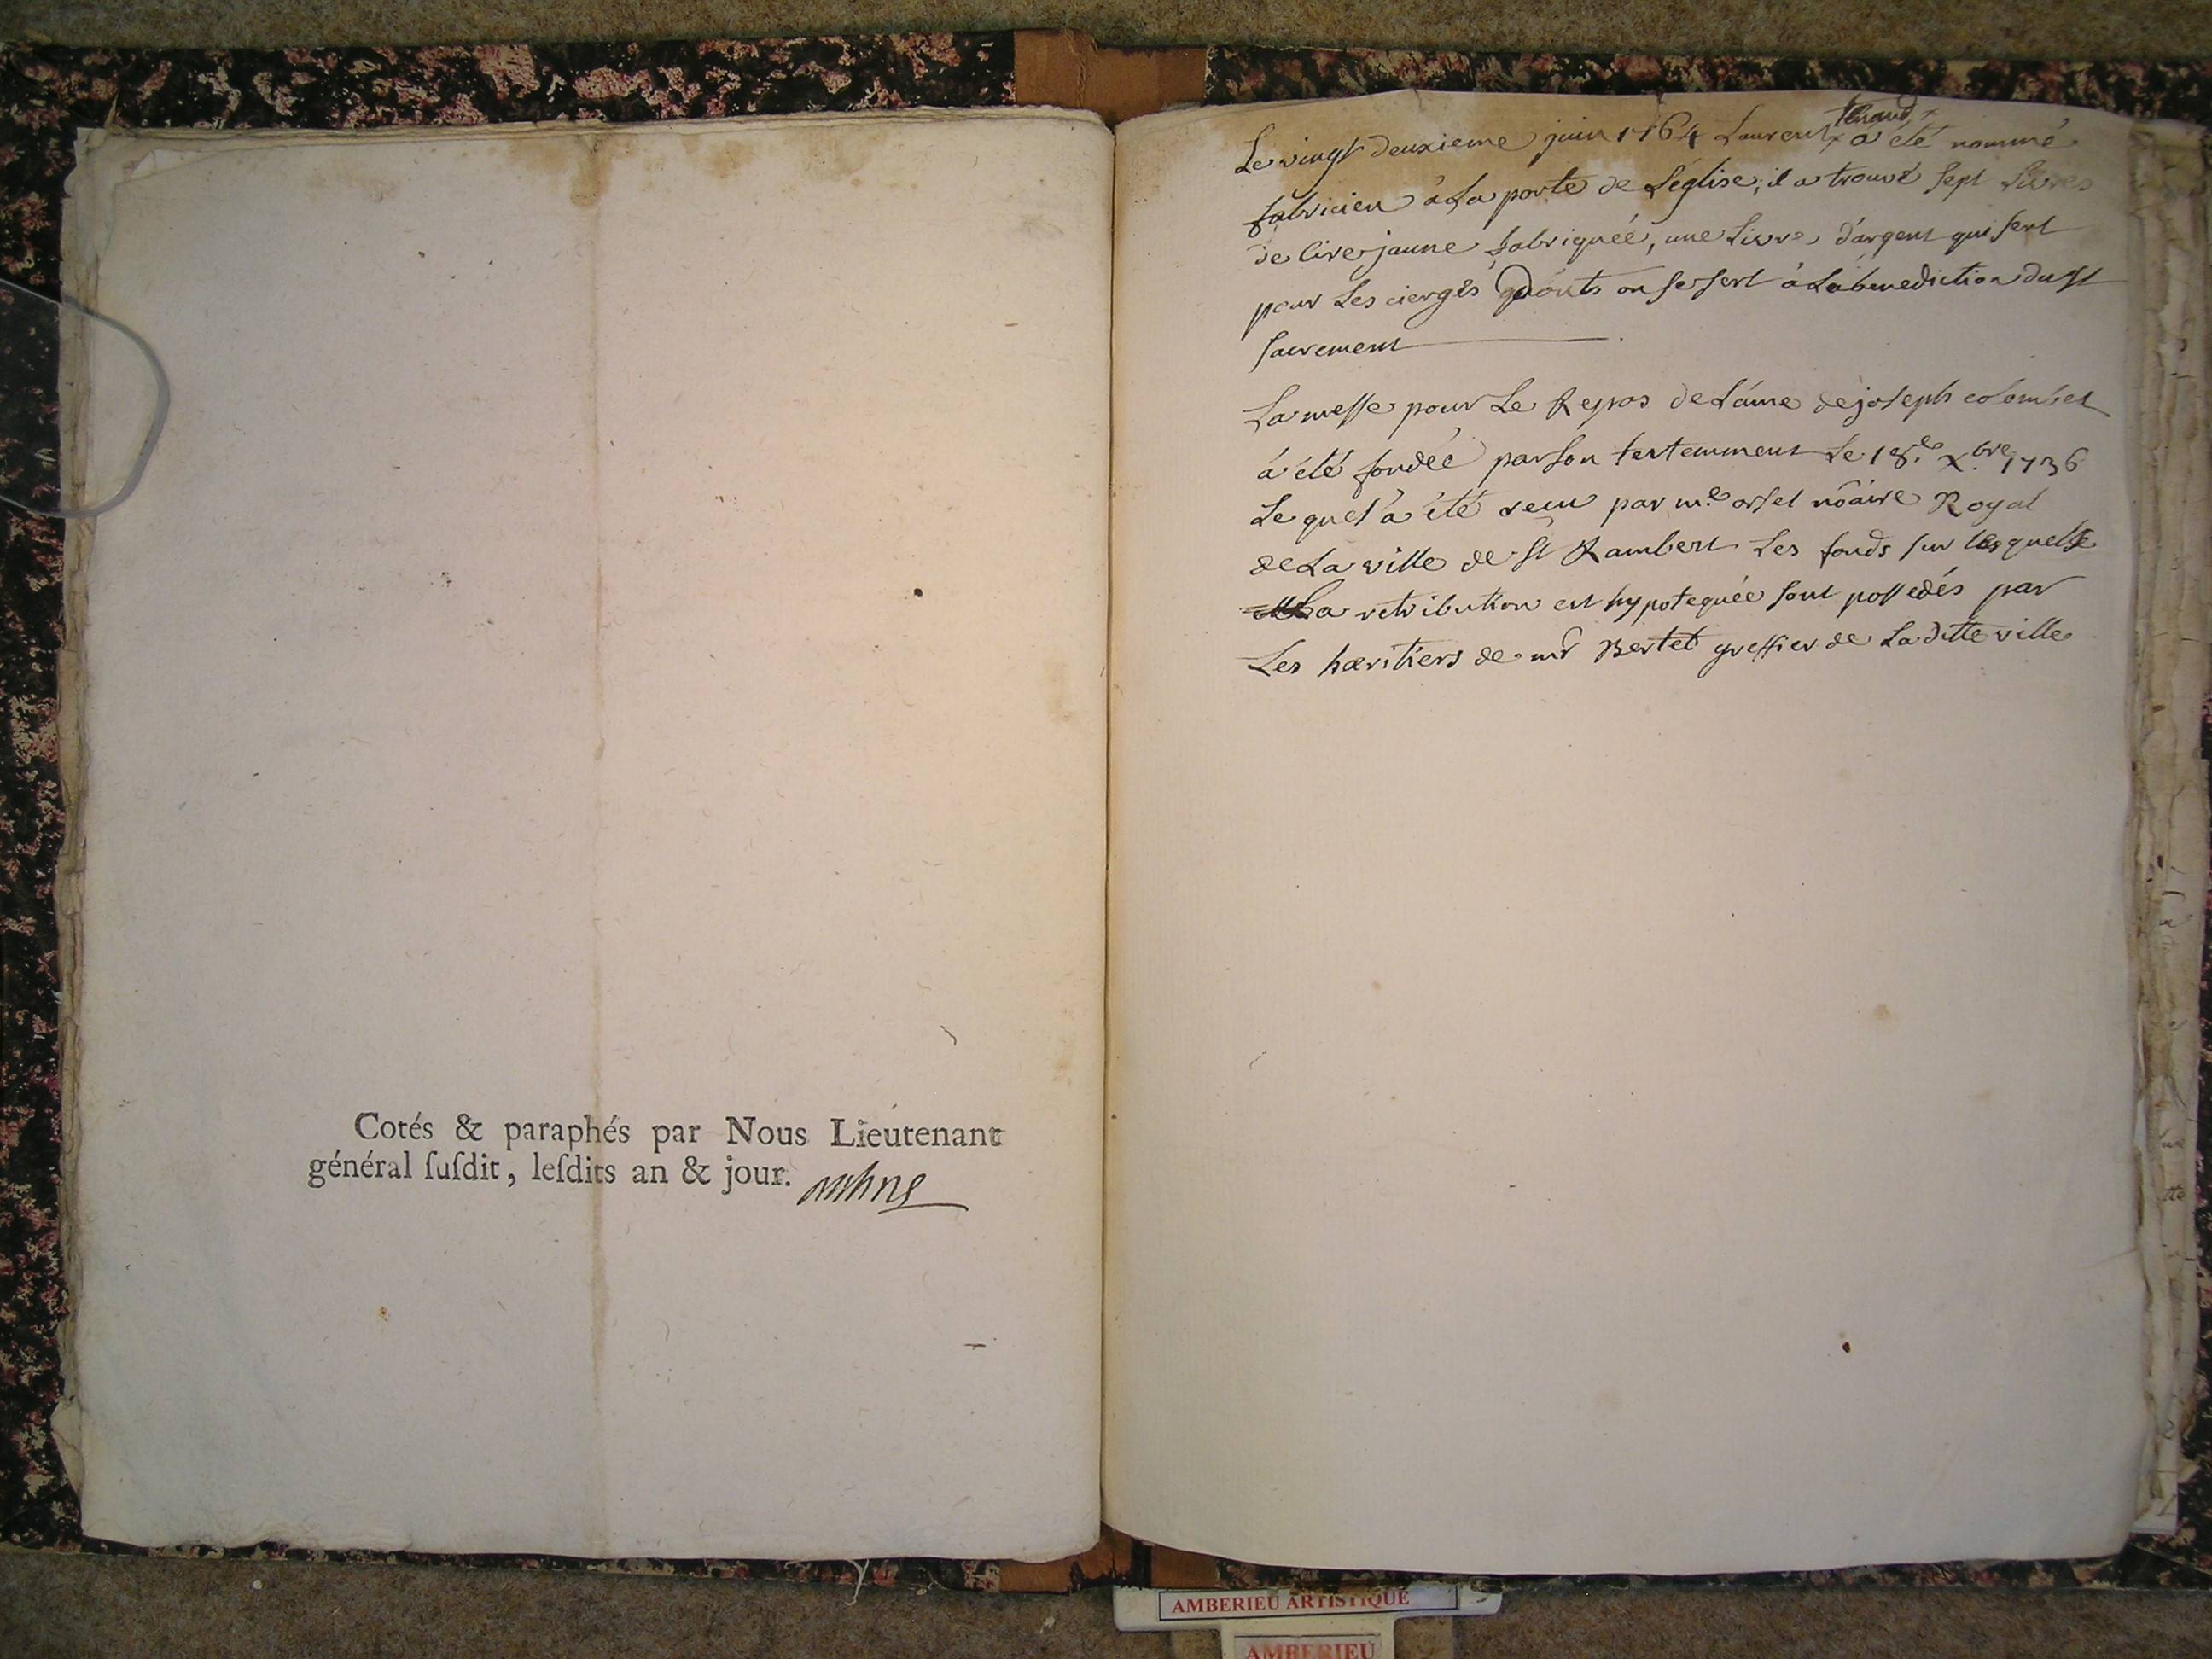 Cotés & paraphés par Nous Lieutenant
général ſuſdit, leſdits an & jour.
tenand +
Le vingt deuxieme juin 1764 Laurent + a été nommé
fabricien à La porte de L'église; il a trouvé sept Livres
de cire jaune fabriquée, une Livre d'argent qui sert
pour Les cierges donts on se sert à La benediction du st
sacrement
La messe pour Le Repos de L'ame de joseph colombet
à été fondée par son testemment Le 18.e Xbre 1736
Le quel a été reçu par m.e orset nôaire Royal
de La ville de St Rambert Les fonds sur lesquelse
La retribution est hypotequée sont possedés par
Les hæritiers de mr Bertet greffier de La ditte ville
AMBERIEU ARTISTIQUE
AMBERIEU